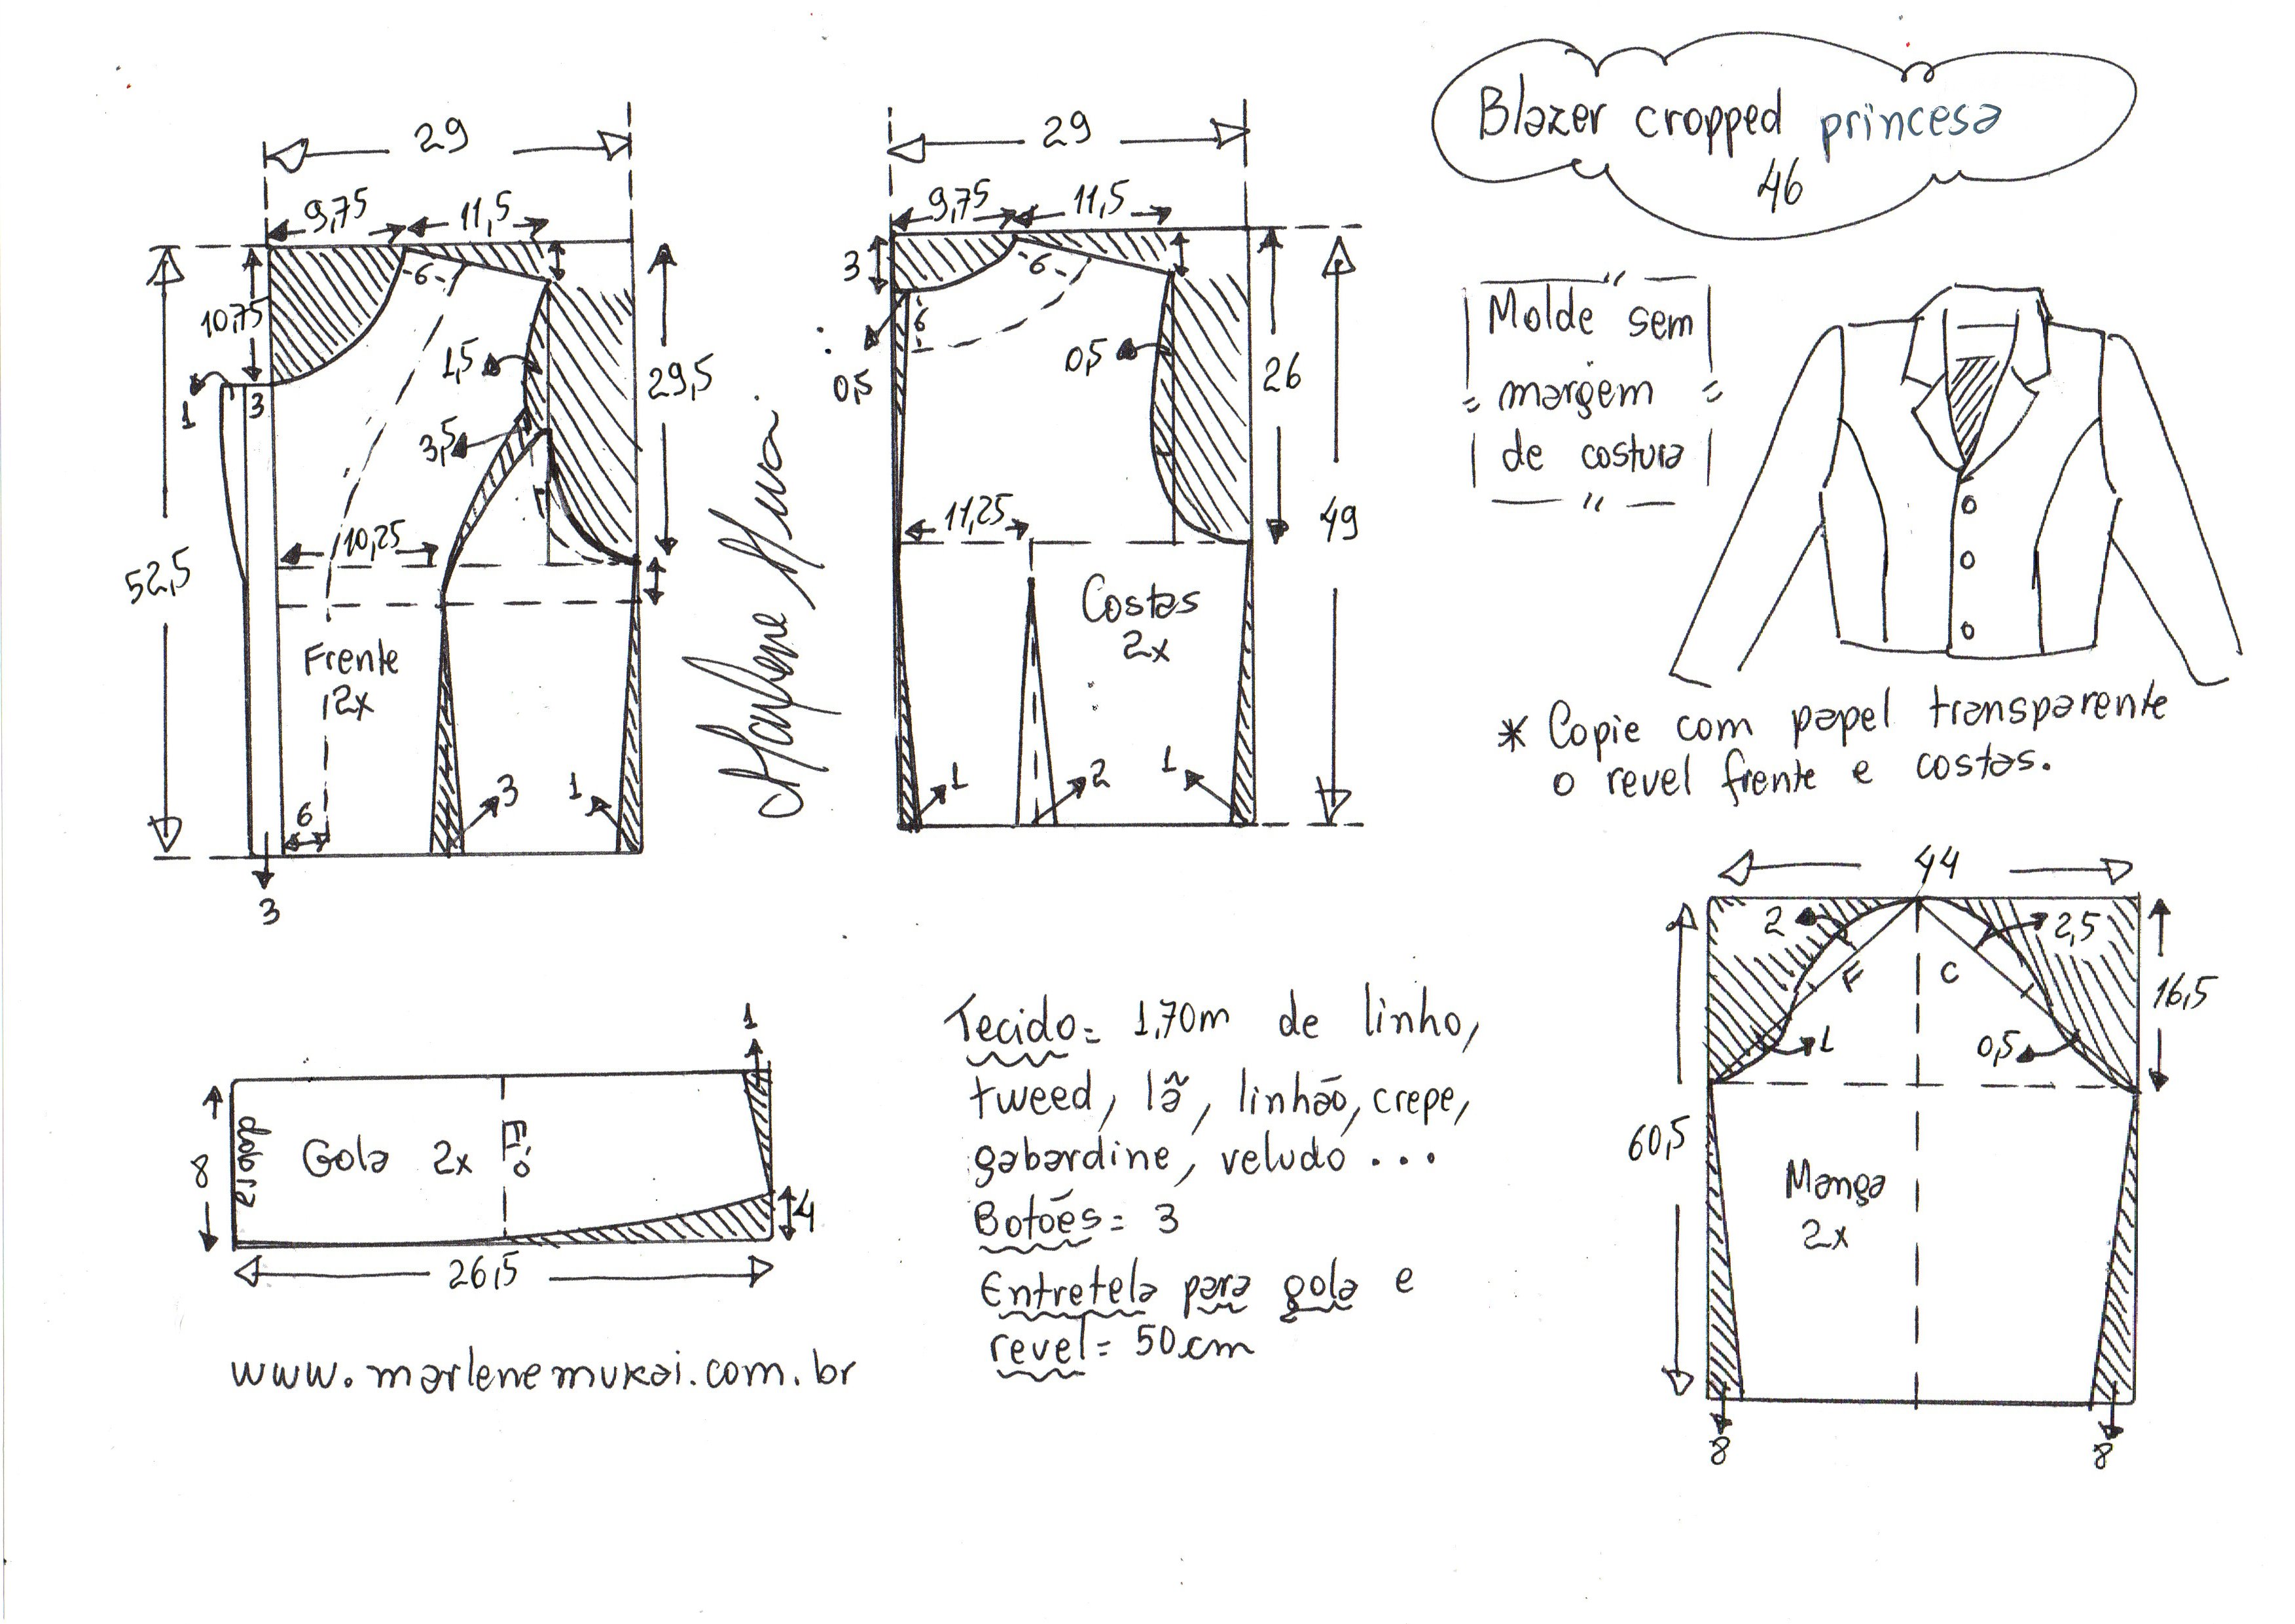 Blazer cropped princesa
46
29
9,75
11,5
6
10,75
1
3
1,5
3,5
29,5
10,25
52,5
Frente
2x
6
3
1
3
29
9,75
11,5
3
6
6
0,5
0,5
26
11,25
49
Costas
2x
1
2
1
Molde sem
margem
de costura
* Copie com papel transparente
o revel frente e costas.
44
2
2,5
F
C
16,5
1
0,5
60,5
Manga
2x
8
8
1
8
dobra
Gola 2x
Fio
4
26,5
www.marlenemukai.com.br
Tecido= 1,70m de linho,
tweed, lã, linhão, crepe,
gabardine, veludo ...
Botões= 3
Entretela para gola e
revel= 50cm